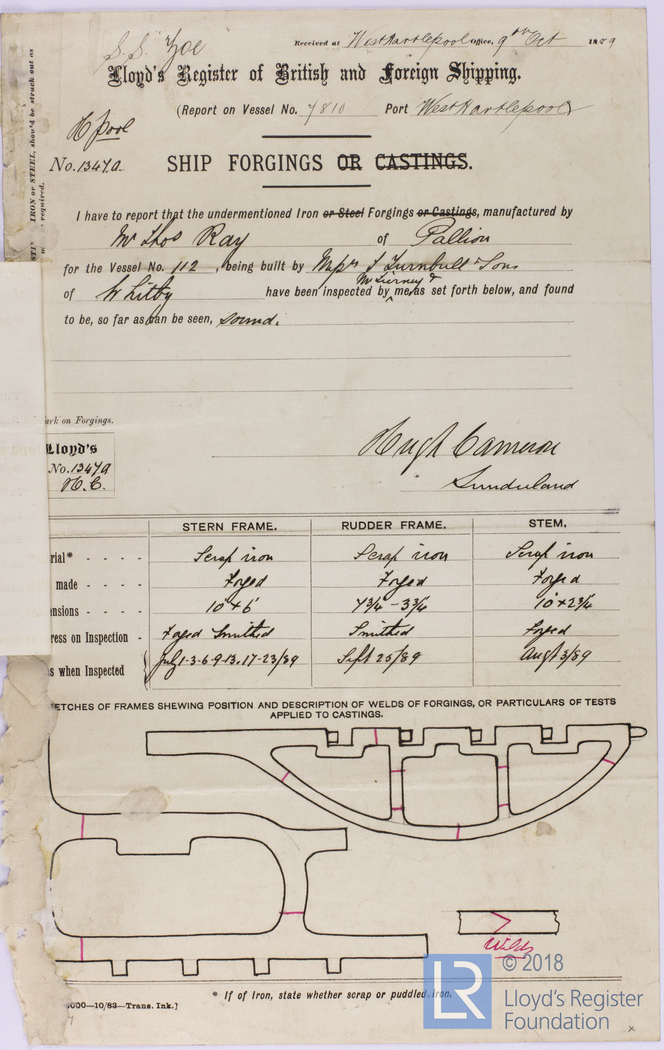 S.S. "Zoe"
Received at West Hartlepool Office, 9th Oct 1889
Lloyd's Register of British and Foreign Shipping.
(Report on Vessel No. 7810 Port West Hartlepool)
H'pool
No. 1347a.
SHIP FORGINGS OR CASTINGS.
IRON or STEEL, should be struck out as
required.
I have to report that the undermentioned Iron or Steel Forgings or Castings, manufactured by
Mr Thos Ray of Pallion
for the Vessel No. 112, being built by Messrs T Turnbull & Sons
Mr Tierney &
of Whitby have been inspected by me, as set forth below, and found
to be, so far as can be seen, sound.
ark on Forgings.
Lloyd's
No. 1347a
H.C.
Hugh Cameron
Sunderland
STERN FRAME. RUDDER FRAME. STEM.
rial* - - - - Scrap iron Scrap iron Scrap iron
made - - - - Forged Forged Forged
ensions - - - - 10 × 6 7¾ - 3¾ 10 × 2¾
ress on Inspection - Forged Smithed Smithed Forged
s when Inspected July 1·3·6·9·13·17·23/89 Sept 25/89 Augt 3/89
ETCHES OF FRAMES SHEWING POSITION AND DESCRIPTION OF WELDS OF FORGINGS, OR PARTICULARS OF TESTS
APPLIED TO CASTINGS.
Welds
* If of Iron, state whether scrap or puddled iron.
000—10/83—Trans. Ink.]
LR
© 2018
Lloyd's Register
Foundation